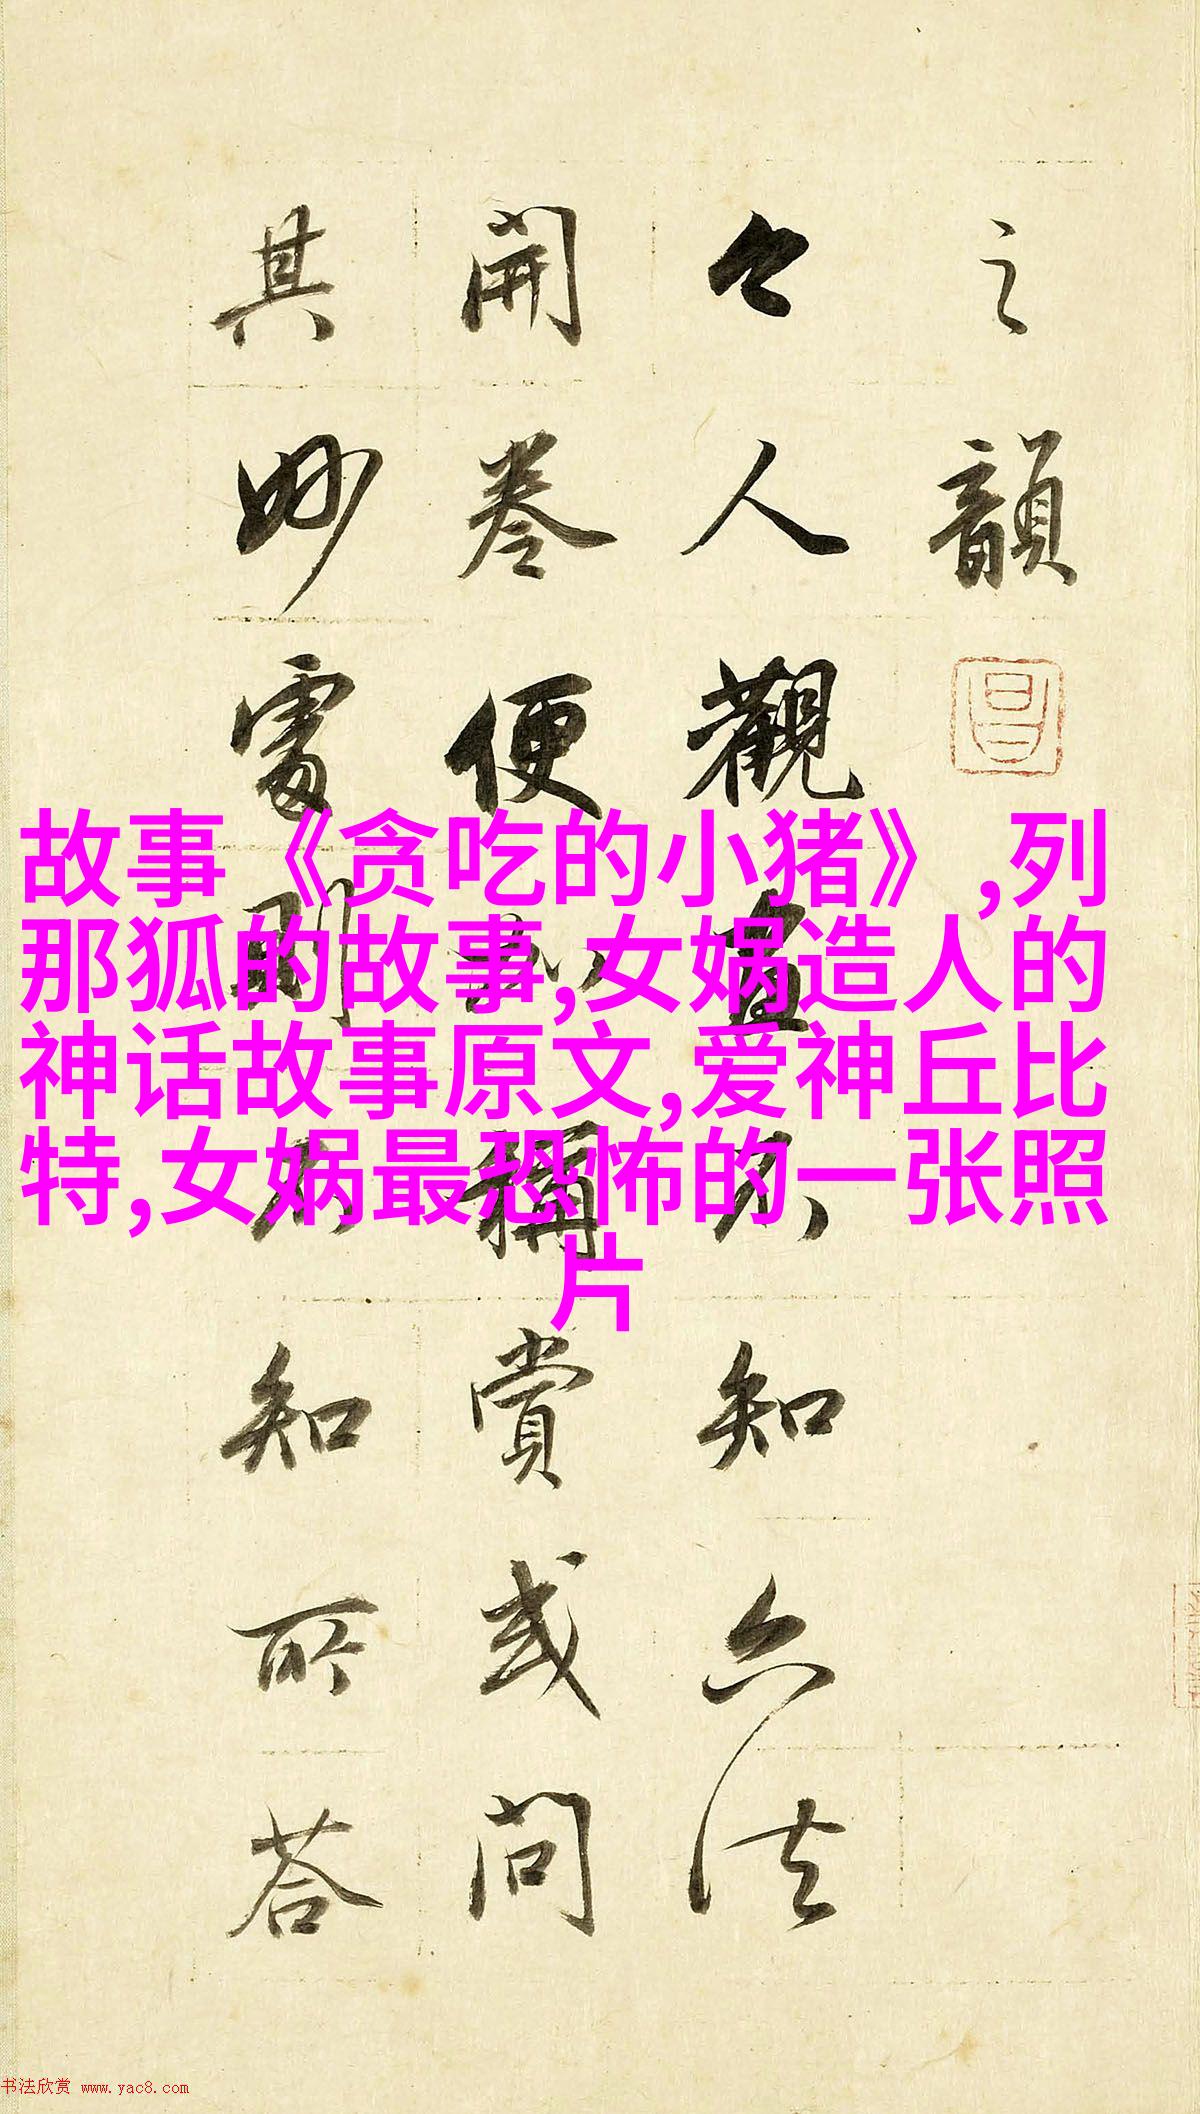 之韻
今人觀畫不知六法
開卷便加稱賞或問
其妙處則不知所答
故事《贪吃的小猪》,列
那狐的故事,女娲造人的
神话故事原文,爱神丘比
特,女娲最恐怖的一张照
片
书法欣赏 www.yac8.com